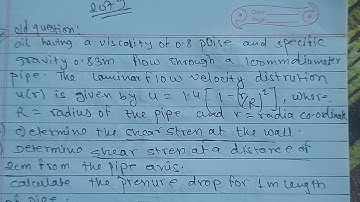 2079
Date:
Page:
old question:
oil having a viscosity of 0.8 poise and specific
gravity 0.83m flow through a 100mm diameter
pipe. The laminar flow velocity distrution
u(r) is given by u = 1.4[1-(r/R)²], where
R = radius of the pipe and r = radia co-ordinate
) Determine the shear stren at the wall.
) Determine shear stren at a distance of
2cm from the pipe anis.
calculate the prenure drop for 1m length
of pipe.